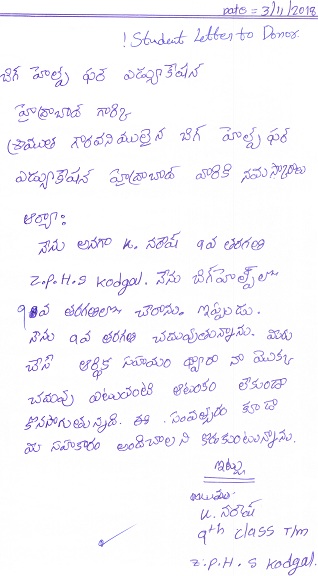 Date = 3/11/2018
! Student Letter to Donor.
బిగ్ హెల్ప్ ఫర్ ఎడ్యుకేషన్
హైద్రాబాద్ గార్కి
శ్రీయుత గౌరవనియులైన బిగ్ హెల్ప్ ఫర్
ఎడ్యుకేషన్ హైద్రాబాద్ వారికి నమస్కారాలు
ఆర్యా:
నేను అనగా K. నరేష్ 9వ తరగతి
Z.P.H.S Kodgal. నేను బిగ్‌హెల్ప్‌లో
9వ తరగతిలో చేరాను. ఇప్పుడు.
నేను 9వ తరగతి చదువుతున్నాను. మీరు
చేసే ఆర్థిక సహాయం ద్వారా నా యొక్క
చదువు ఎటువంటి ఆటంకం లేకుండా
కొనసాగుతున్నది. ఈ సంవత్సరం కూడా
మీ సహకారం అందించాలని కోరుకుంటున్నాను.
ఇట్లు
K. నరేష్
9th class T/m
Z.P.H.S Kodgal.